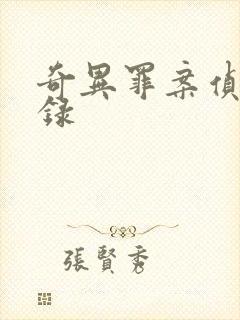 奇異罪案偵
錄
張賢秀